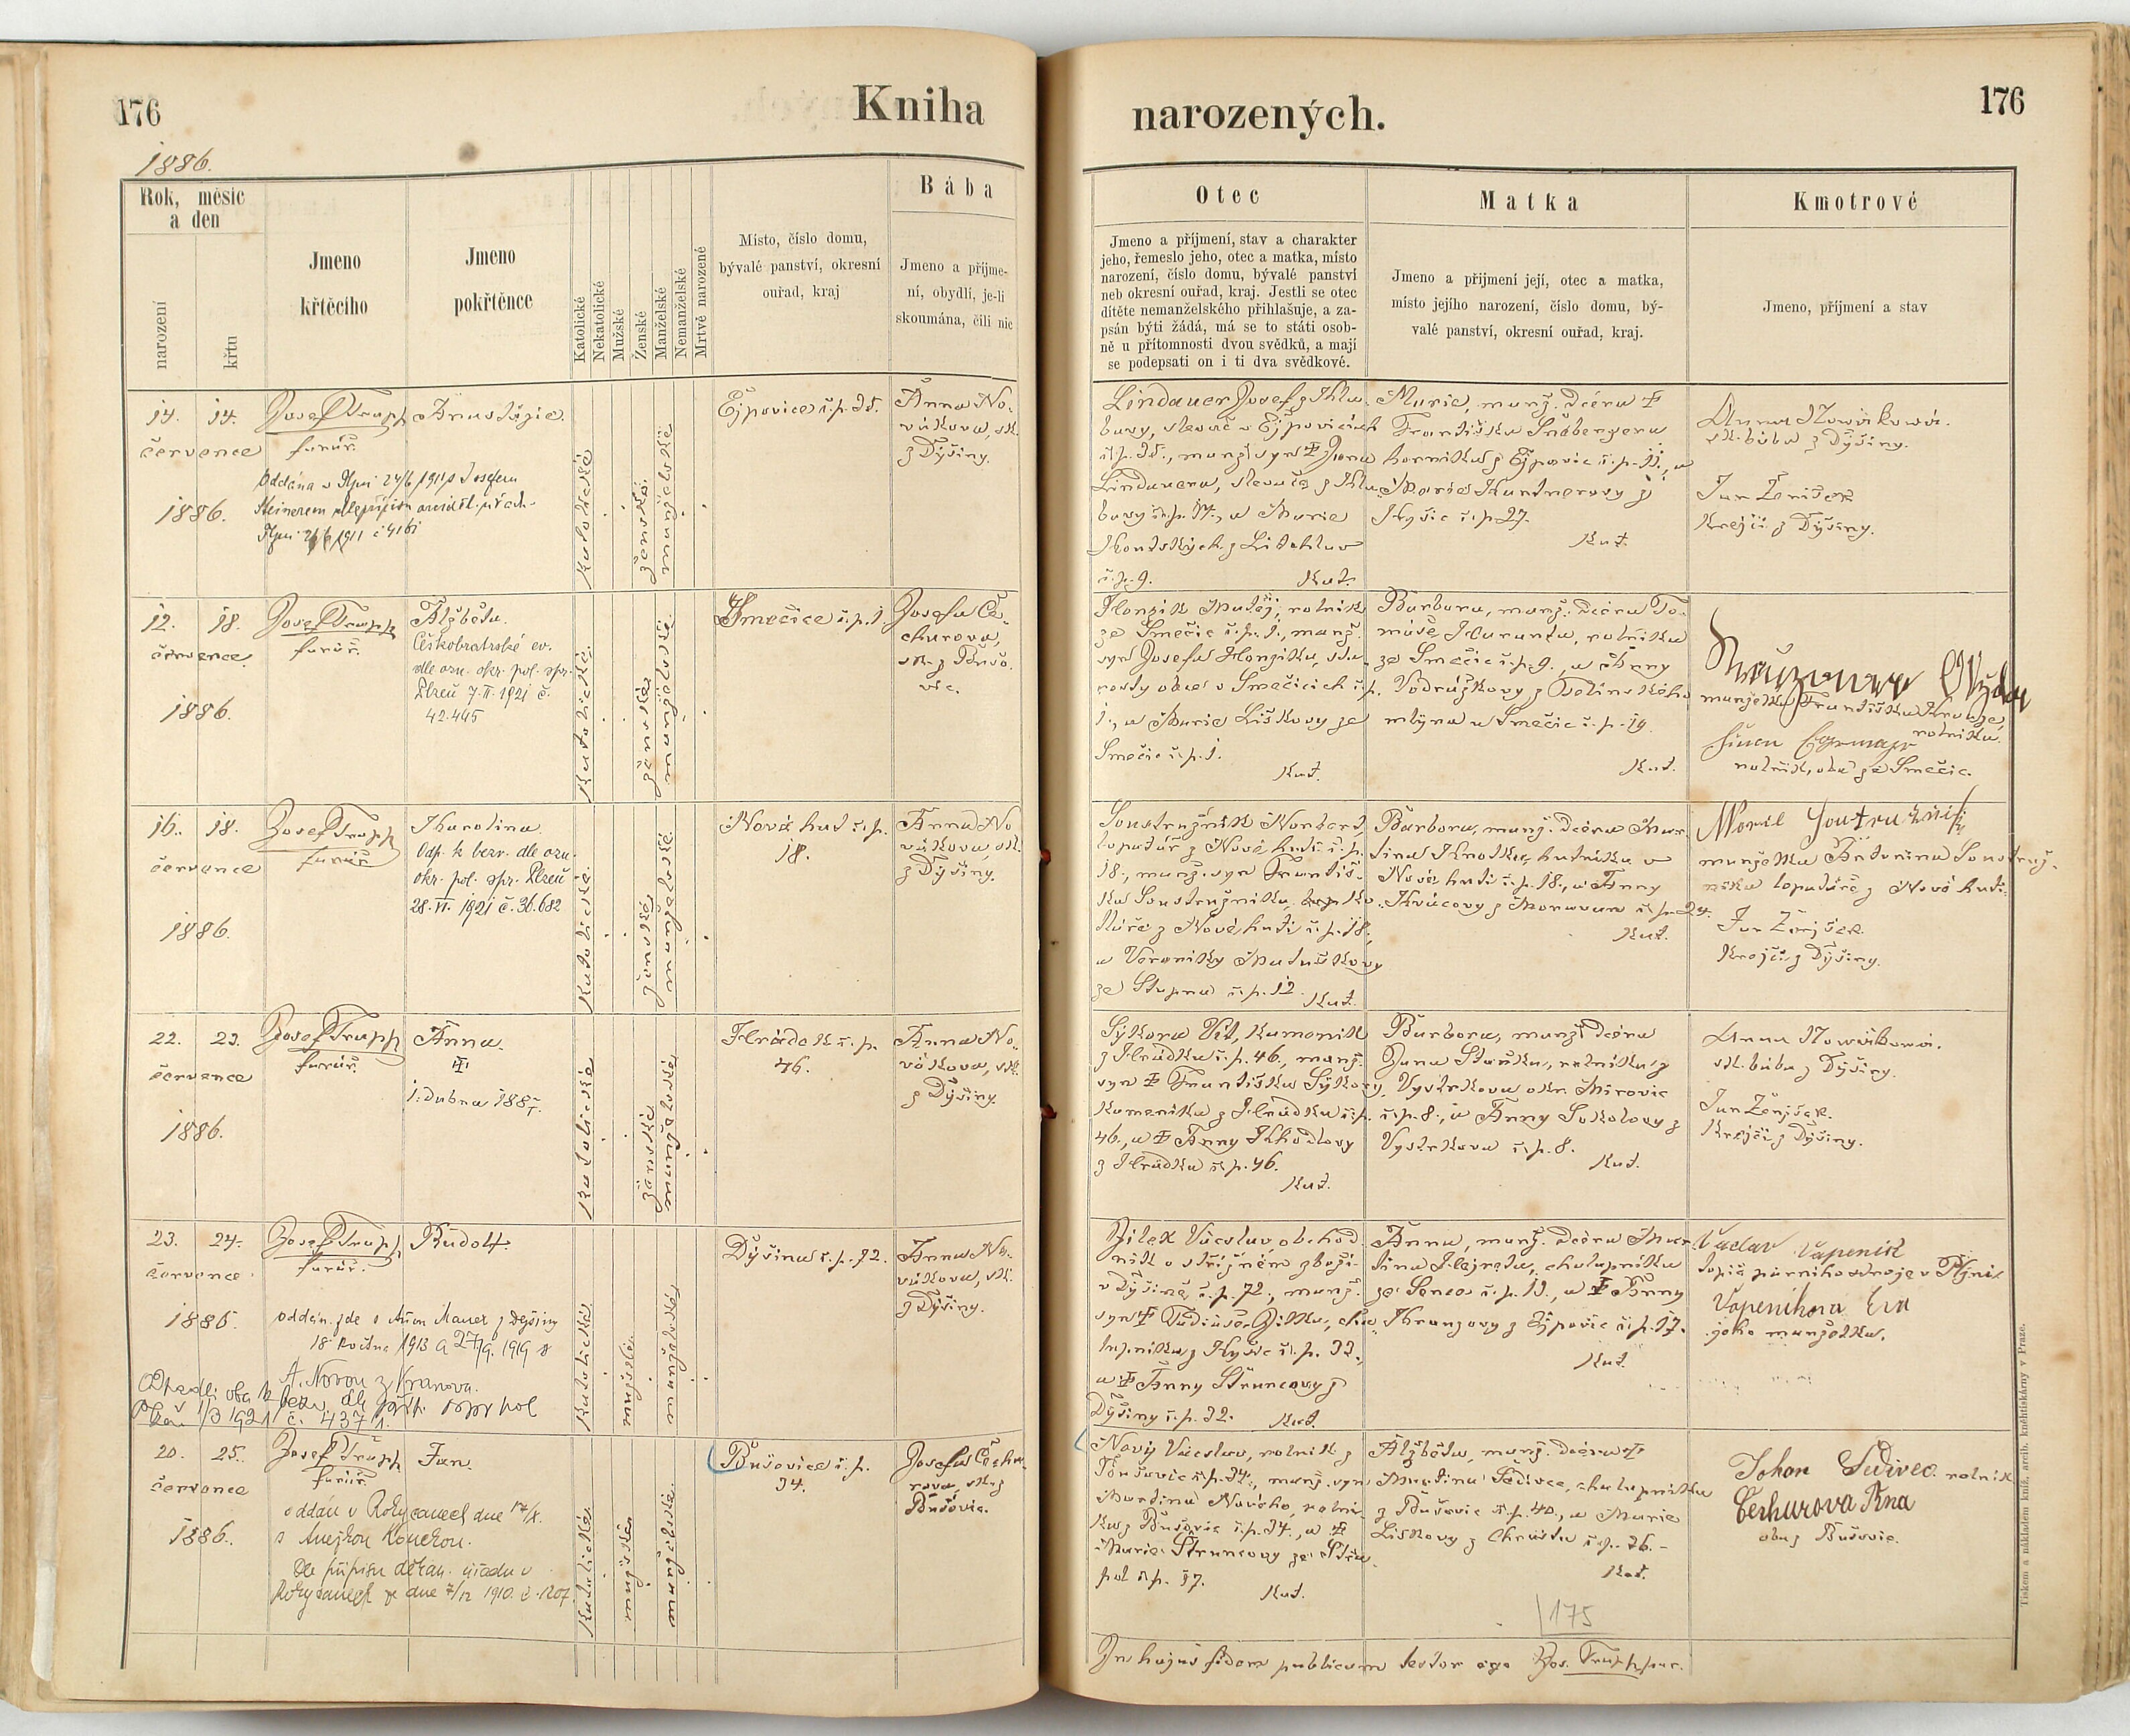 176
Kniha
1886.
Rok, měsíc
a den
narození
křtu
Jmeno
křtěcího
Jmeno
pokřtěnce
Katolické
Nekatolické
Mužské
Ženské
Manželské
Nemanželské
Mrtvě narozené
Místo, číslo domu,
bývalé panství, okresní
ouřad, kraj
Bába
Jmeno a příjme-
ní, obydlí, je-li
skoumána, čili nic
14. 14.
července
1886.
Josef Trapp
farář.
Anastázie.
Oddána v Plzni 24/6 1911 s Josefem
Plzni 26/6 1911
katolické
ženské
manželské
Ejpovice č. p. 35.
Anna No-
váková, zk.
z Dýšiny.
12. 18.
července
1886.
Josef Trapp
farář.
Alžběta.
Českobratrské ev.
dle ozn. okr. pol. spr.
Plzeň 7.II.1921 č.
42.445
katolické
ženské
manželské
Smečice č. p. 1.
Josefa Če-
churova,
zk. z Bušo-
vic.
16. 18.
července
1886.
Josef Trapp
farář
Karolina.
Odp. k bezv. dle ozn.
okr. pol. spr. Plzeň
28.VI. 1921 č. 36.682
katolické
ženské
manželské
Nová huť č. p.
18.
Anna No-
váková, zk.
z Dýšiny.
22. 23.
července
1886.
Josef Trapp
farář.
Anna.
1. dubna 1887.
katolické
ženské
manželské
Hrádek č. p.
46.
Anna No-
váková, zk.
z Dýšiny.
23. 24.
července
1886.
Josef Trapp
farář.
Rudolf.
oddán zde s Annou Mauer z Dejšiny
18 května 1913 a 27/9. 1919 s
A. Novou z Vranova.
1/3 1921 č. 4371.
katolické
mužské
manželské
Dýšina č. p. 72.
Anna No-
váková, zk.
z Dýšiny.
20. 25.
července
1886.
Josef Trapp
farář.
Jan.
oddán v Rokycanech dne 17/X.
s Anežkou
Dle přípisu děkan. úřadu v
Rokycanech ze dne 7/12 1910. č. 1207.
katolické
mužské
manželské
Bušovice č. p.
34.
Josefa Čechu-
rova, zk. z
Bušovic.
narozených.
176
Otec
Jmeno a příjmení, stav a charakter
jeho, řemeslo jeho, otec a matka, místo
narození, číslo domu, bývalé panství
neb okresní ouřad, kraj. Jestli se otec
dítěte nemanželského přihlašuje, a za-
psán býti žádá, má se to státi osob-
ně u přítomnosti dvou svědků, a mají
se podepsati on i ti dva svědkové.
Matka
Jmeno a přijmení její, otec a matka,
místo jejího narození, číslo domu, bý-
valé panství, okresní ouřad, kraj.
Kmotrové
Jmeno, příjmení a stav
Lindauer Josef z Kla-
bavy, slevač v Ejpovicích
č. p. 35., manž. syn † Jana
Lindauera, slevače z Kla-
bavy č. p. 17., a Marie
z Litohlav
č. p. 9. Kat.
Marie, manž. dcera †
Františka Šnábergera
horníka z Ejpovic č. p. 11., a
Marie Kantnerovy z
Kyšic č. p. 27.
Kat.
Anna Nowákowá.
zk. bába z Dýšiny.
Jan Ženíšek
Krejčí z Dýšiny.
Honzík Matěj, rolník
ze Smečic č. p. 1., manž.
syn Josefa Honzíka, sta-
rosty obce v Smečicích č. p.
1., a Marie Liškovy ze
Smečic č. p. 1.
Kat.
Barbora, manž. dcera To-
máše Haranta, rolníka
ze Smečic č. p. 9., a Anny
Vodrážkovy z
mlýna u Smečic č. p. 19.
Kat.
manželka Františka
rolníka.
rolník, oba ze Smečic.
Soustružník Norbert,
lopatář z Nové huti č. p.
18., manž. syn Františ-
ka Soustružníka,
z Nové huti č. p. 18.,
a Veroniky Matuškovy
ze Stupna č. p. 12. Kat.
Barbora, manž. dcera Mar-
tina Knotka, hutníka v
Nové huti č. p. 18., a Anny
Krácovy z Moravan č. p. 24.
Kat.
manželka Antonína Soustruž-
níka lopatáře z Nové huti.
Jan Ženíšek.
Krejčí z Dýšiny.
Sýkora Vít, kameník
z Hrádku č. p. 46., manž.
syn † Františka Sýkory,
kameníka z Hrádku č. p.
46., a † Anny Khodlovy
z Hrádku č. p. 46.
Kat.
Barbora, manž. dcera
Jana Staňka, rolníka z
Vystrkova okr. Mirovic
č. p. 8., a Anny Sokolovy z
Vystrkova č. p. 8.
Kat.
Anna Nowákowá.
zk. bába z Dýšiny.
Jan Ženíšek.
Krejčí z Dýšiny.
Jílek Václav, obchod-
ník v střižném zboží
v Dýšině, č. p. 72., manž.
syn † Tadiáše Jílka, cha-
lupníka z Kyšic č. p. 32.,
a † Anny Štruncovy z
Dýšiny č. p. 32. Kat.
Anna, manž. dcera Mar-
tina Hejreta, chalupníka
ze Sence č. p. 13., a † Anny
z Ejpovic č. p. 17.
Kat.
Václav Vápeník
topič parního stroje v Plzni
Vopeníkova Eva
jeho manželka.
Nový Václav, rolník z
Bušovic č. p. 34., manž. syn
Martina Nového, rolní-
ka z Bušovic č. p. 34., a †
Marie Štruncovy ze Stra-
pol č. p. 17.
Kat.
Alžběta, manž. dcera †
Martina Šedivce, chalupníka
z Bušovic č. p. 40., a Marie
Liškovy z Chrástu č. p. 26.
Kat.
Johan Šedivec. rolník
Čechurova Anna
oba z Bušovic.
175
In hujus fidem publicam testor ego Jos. Trapp, par.
Tiskem a nákladem kníž. arcib. knihtiskárny v Praze.